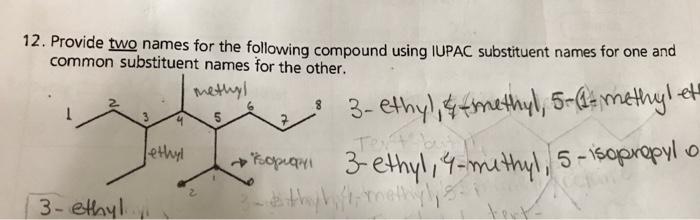 12. Provide two names for the following compound using IUPAC substituent names for one and
common substituent names for the other.
methyl
1 2 3 4 5 6 7 8
3-ethyl, 4-methyl, 5-(1-methyl et
ethyl
isopropyl
3-ethyl, 4-methyl, 5-isopropyl o
1
2
3-ethyl
tert